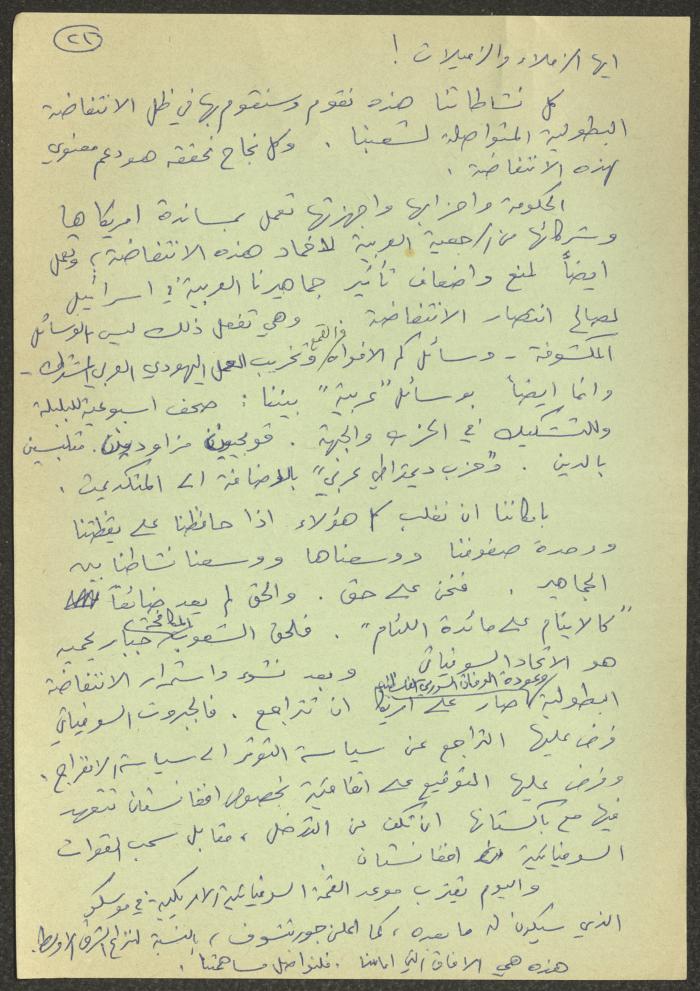 (٢١)
ايها الزملاء والزميلات !
كل نشاطاتنا هذه نقوم وسنقوم بها في ظل الانتفاضة
البطولية المتواصلة لشعبنا . وكل نجاح نحققه هو دعم معنوي
لهذه الانتفاضة .
الحكومة واحزابها واجهزتها تعمل بمساندة امريكاها
وشركائها من الرجعية العربية لاخماد هذه الانتفاضة ، وتعمل
ايضاً لمنع واضعاف تأثير جماهيرنا العربية في اسرائيل
لصالح انتصار الانتفاضة . وهي تفعل ذلك ليس بالوسائل
المكشوفة - وسائل كم الافواه والقمع وتخريب العمل اليهودي العربي المشترك -
وانما ايضاً بوسائل "عربية" بيننا : صحف اسبوعية للبلبلة
وللتشكيك في الحزب والجبهة . قومجيون مزاودون . متلبسين
بالدين . و"حزب ديمقراطي عربي" بالاضافة الى المتكدبين .
بامكاننا ان نغلب كل هؤلاء اذا حافظنا على يقظتنا
ووحدة صفوفنا ووسعناها ووسعنا نشاطنا بين
الجماهير . فنحن على حق . والحق لم يعد ضائعاً
"كالايتام على مائدة اللئام" . فلحق الشعوب المكافحة جبار يحميه
هو الاتحاد السوفياتي . وبعد نشوء واستمرار الانتفاضة
البطولية وعودة الوفاق السوري الفلسطيني صار على امريكا ان تتراجع . فالجبروت السوفياتي
فرض عليها التراجع عن سياسة التوتر الى سياسة الانفراج .
وفرض عليها التوقيع على اتفاقية بخصوص افغانستان تتعهد
فيها مع باكستانها ان تكف عن التدخل ، مقابل سحب القوات
السوفياتية من افغانستان .
واليوم يقترب موعد القمة السوفياتية الامريكية في موسكو
الذي سيكون له ما بعده ، كما اعلن جورباتشوف ، بالنسبة لنزاع الشرق الاوسط .
هذه هي الافاق التي امامنا . فلنواصل مساهمتنا .